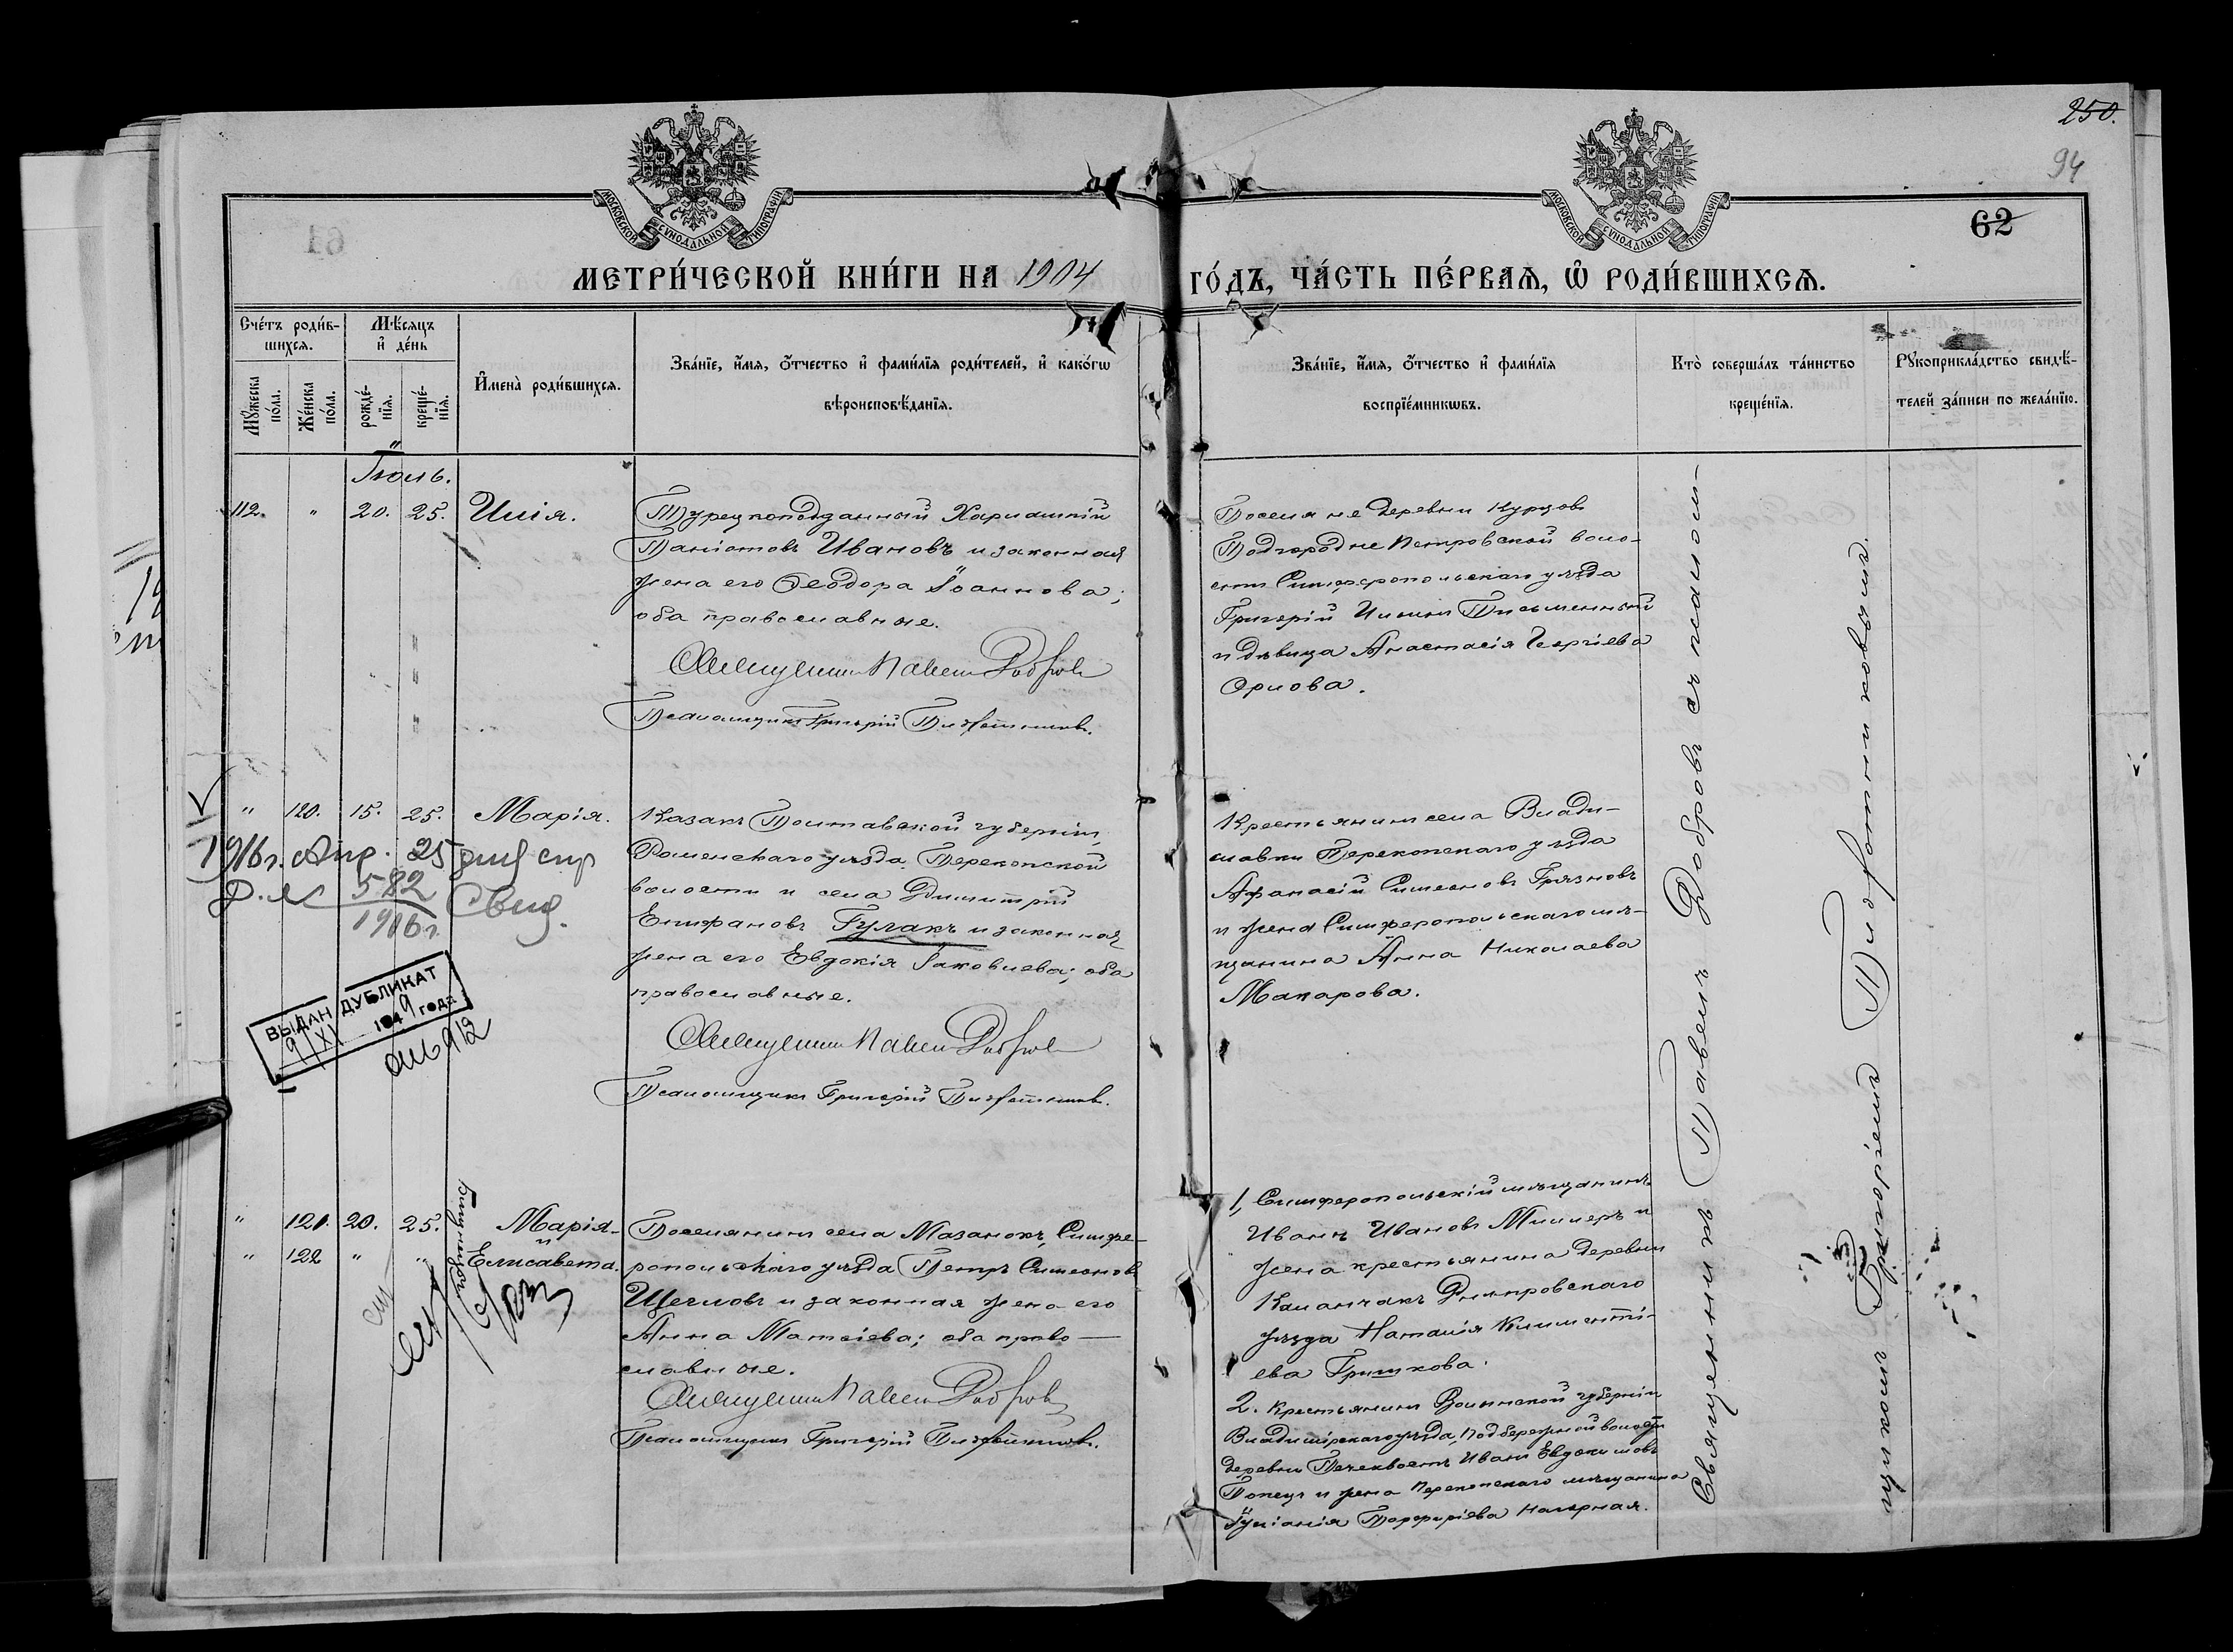 250.
94
62
61
МОСКОВСКОЙ СѴНОДАЛЬНОЙ ТИПОГРАФІИ
МОСКОВСКОЙ СѴНОДАЛЬНОЙ ТИПОГРАФІИ
МЕТРИ́ЧЕСКОЙ КНИ́ГИ НА 1904 ГО́ДЪ, ЧА́СТЬ ПЕ́РВАѦ, Ѡ҆ РОДИ́ВШИХСѦ.
Сче́тъ роди́в-
шихсѧ.
Мꙋ́жеска по́ла.
Же́нска по́ла.
Мѣ́сѧцъ
и҆ де́нь
рожде́-
нїѧ.
креще́-
нїѧ.
И҆мена̀ роди́вшихсѧ.
Зва́нїе, и҆́мѧ, ѻ҆́тчество и҆ фами́лїѧ роди́телей, и҆ како́гѡ
вѣроисповѣ́данїѧ.
Зва́нїе, и҆́мѧ, ѻ҆́тчество и҆ фами́лїѧ
воспрїе́мникѡвъ.
Кто̀ соверша́лъ та́инство
креще́нїѧ.
Рꙋкоприкла́дство свидѣ́-
телей за́писи по жела́нїю.
Іюль.
112. " 20. 25. Илія.
Турецкоподданный Харлампій
Панаіотовъ Ивановъ и законная
жена его Ѳеодора Іоаннова;
оба православные.
Священникъ Павелъ Добровъ
Псаломщикъ Григорій
Поселяне деревни Курцовъ
Подгородне Петровской воло-
сти Симферопольскаго уѣзда
Григорій Ильинъ Письменный
и дѣвица Анастасія Георгіева
Орлова.
" 120. 15. 25. Марія.
1916 г. Апр. 25
582
1916 г.
ВЫДАН ДУБЛИКАТ
9/XI 1949 года
Казакъ Полтавской губерніи,
Роменскаго уѣзда, Перекопской
волости и села Димитрій
Епифановъ Гулакъ и законная
жена его Евдокія Іаковлева; оба
православные.
Священникъ Павелъ Добровъ
Псаломщикъ Григорій
Крестьянинъ села Влади-
славки Перекопскаго уѣзда
Афанасій Симеоновъ Грязновъ
и жена Симферопольскаго мѣ-
щанина Анна Николаева
Макарова.
" 121. 20. 25. Марія
и
" 122 " " Елисавета.
Близнецы
Поселянинъ села Мазанокъ, Симфе-
ропольскаго уѣзда Петръ Симеоновъ
Щегловъ и законная жена его
Анна Матѳіева; оба право-
славные.
Священникъ Павелъ Добровъ
Псаломщикъ Григорій
1, Симферопольскій мѣщанинъ
Иванъ Ивановъ Миллеръ и
жена крестьянина деревни
Каланчакъ Днѣпровскаго
уѣзда Наталія Клименті-
ева Гришкова.
2. Крестьянинъ Волынской губерніи
Владимірскаго уѣзда, Подбережной волости
деревни Иванъ Евдокимовъ
и жена Перекопскаго мѣщанина
Іуліанія Порфиріева Нагорная.
Священникъ Павелъ Добровъ съ псалом-
щикомъ Григоріемъ